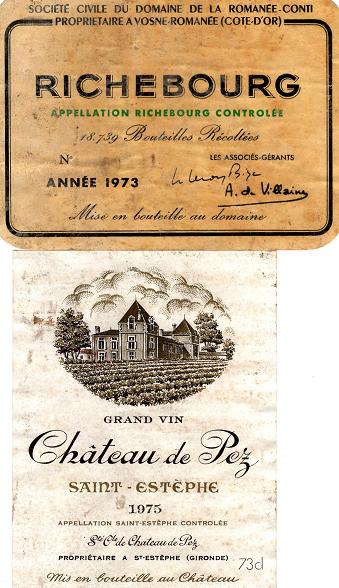 SOCIÉTÉ CIVILE DU DOMAINE DE LA ROMANÉE-CONTI
PROPRIETAIRE A VOSNE-ROMANÉE (COTE-D'OR)
RICHEBOURG
APPELLATION RICHEBOURG CONTROLÉE
18.739 Bouteilles Récoltées
N°
LES ASSOCIÉS-GÉRANTS
ANNÉE 1973
A. de Villaine
Mise en bouteille au domaine
GRAND VIN
Château de Pez
SAINT-ESTÈPHE
1975
APPELLATION SAINT-ESTÈPHE CONTROLÉE
Sté Cle de Château de Pez
PROPRIÉTAIRE A ST-ESTÈPHE (GIRONDE)
73cl
Mis en bouteille au Château